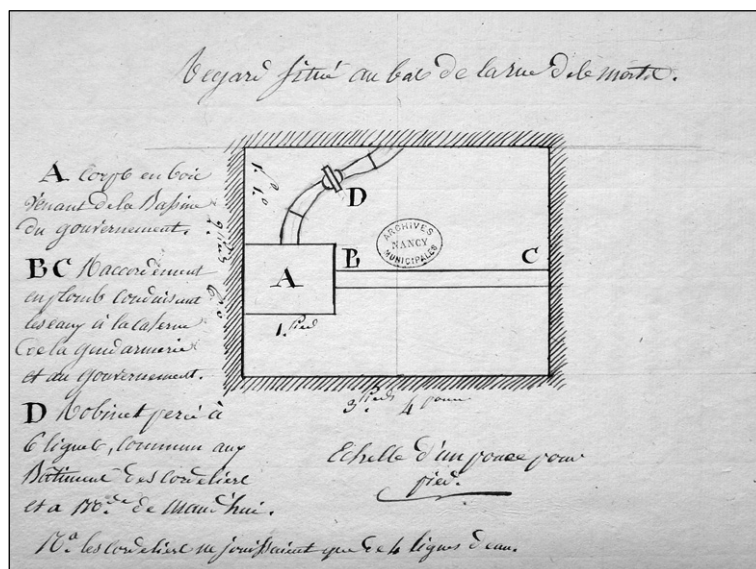 Regard situé au bas de la rue de la
A Corps en bois
venant de la Bassine
du gouvernement.
BC Raccordement
en plomb conduisant
les eaux à la caserne
de la gendarmerie
et au gouvernement.
D Robinet percé à
6 lignes, commun aux
Bâtiment des cordeliers
et a Mde de
Na. les cordeliers ne jouissaient que de 4 lignes d'eau.
D
ARCHIVES
NANCY
MUNICIPALES
B
C
A
1. pied
3. pieds 4 pouces
Echelle d'un pouce pour
pied.